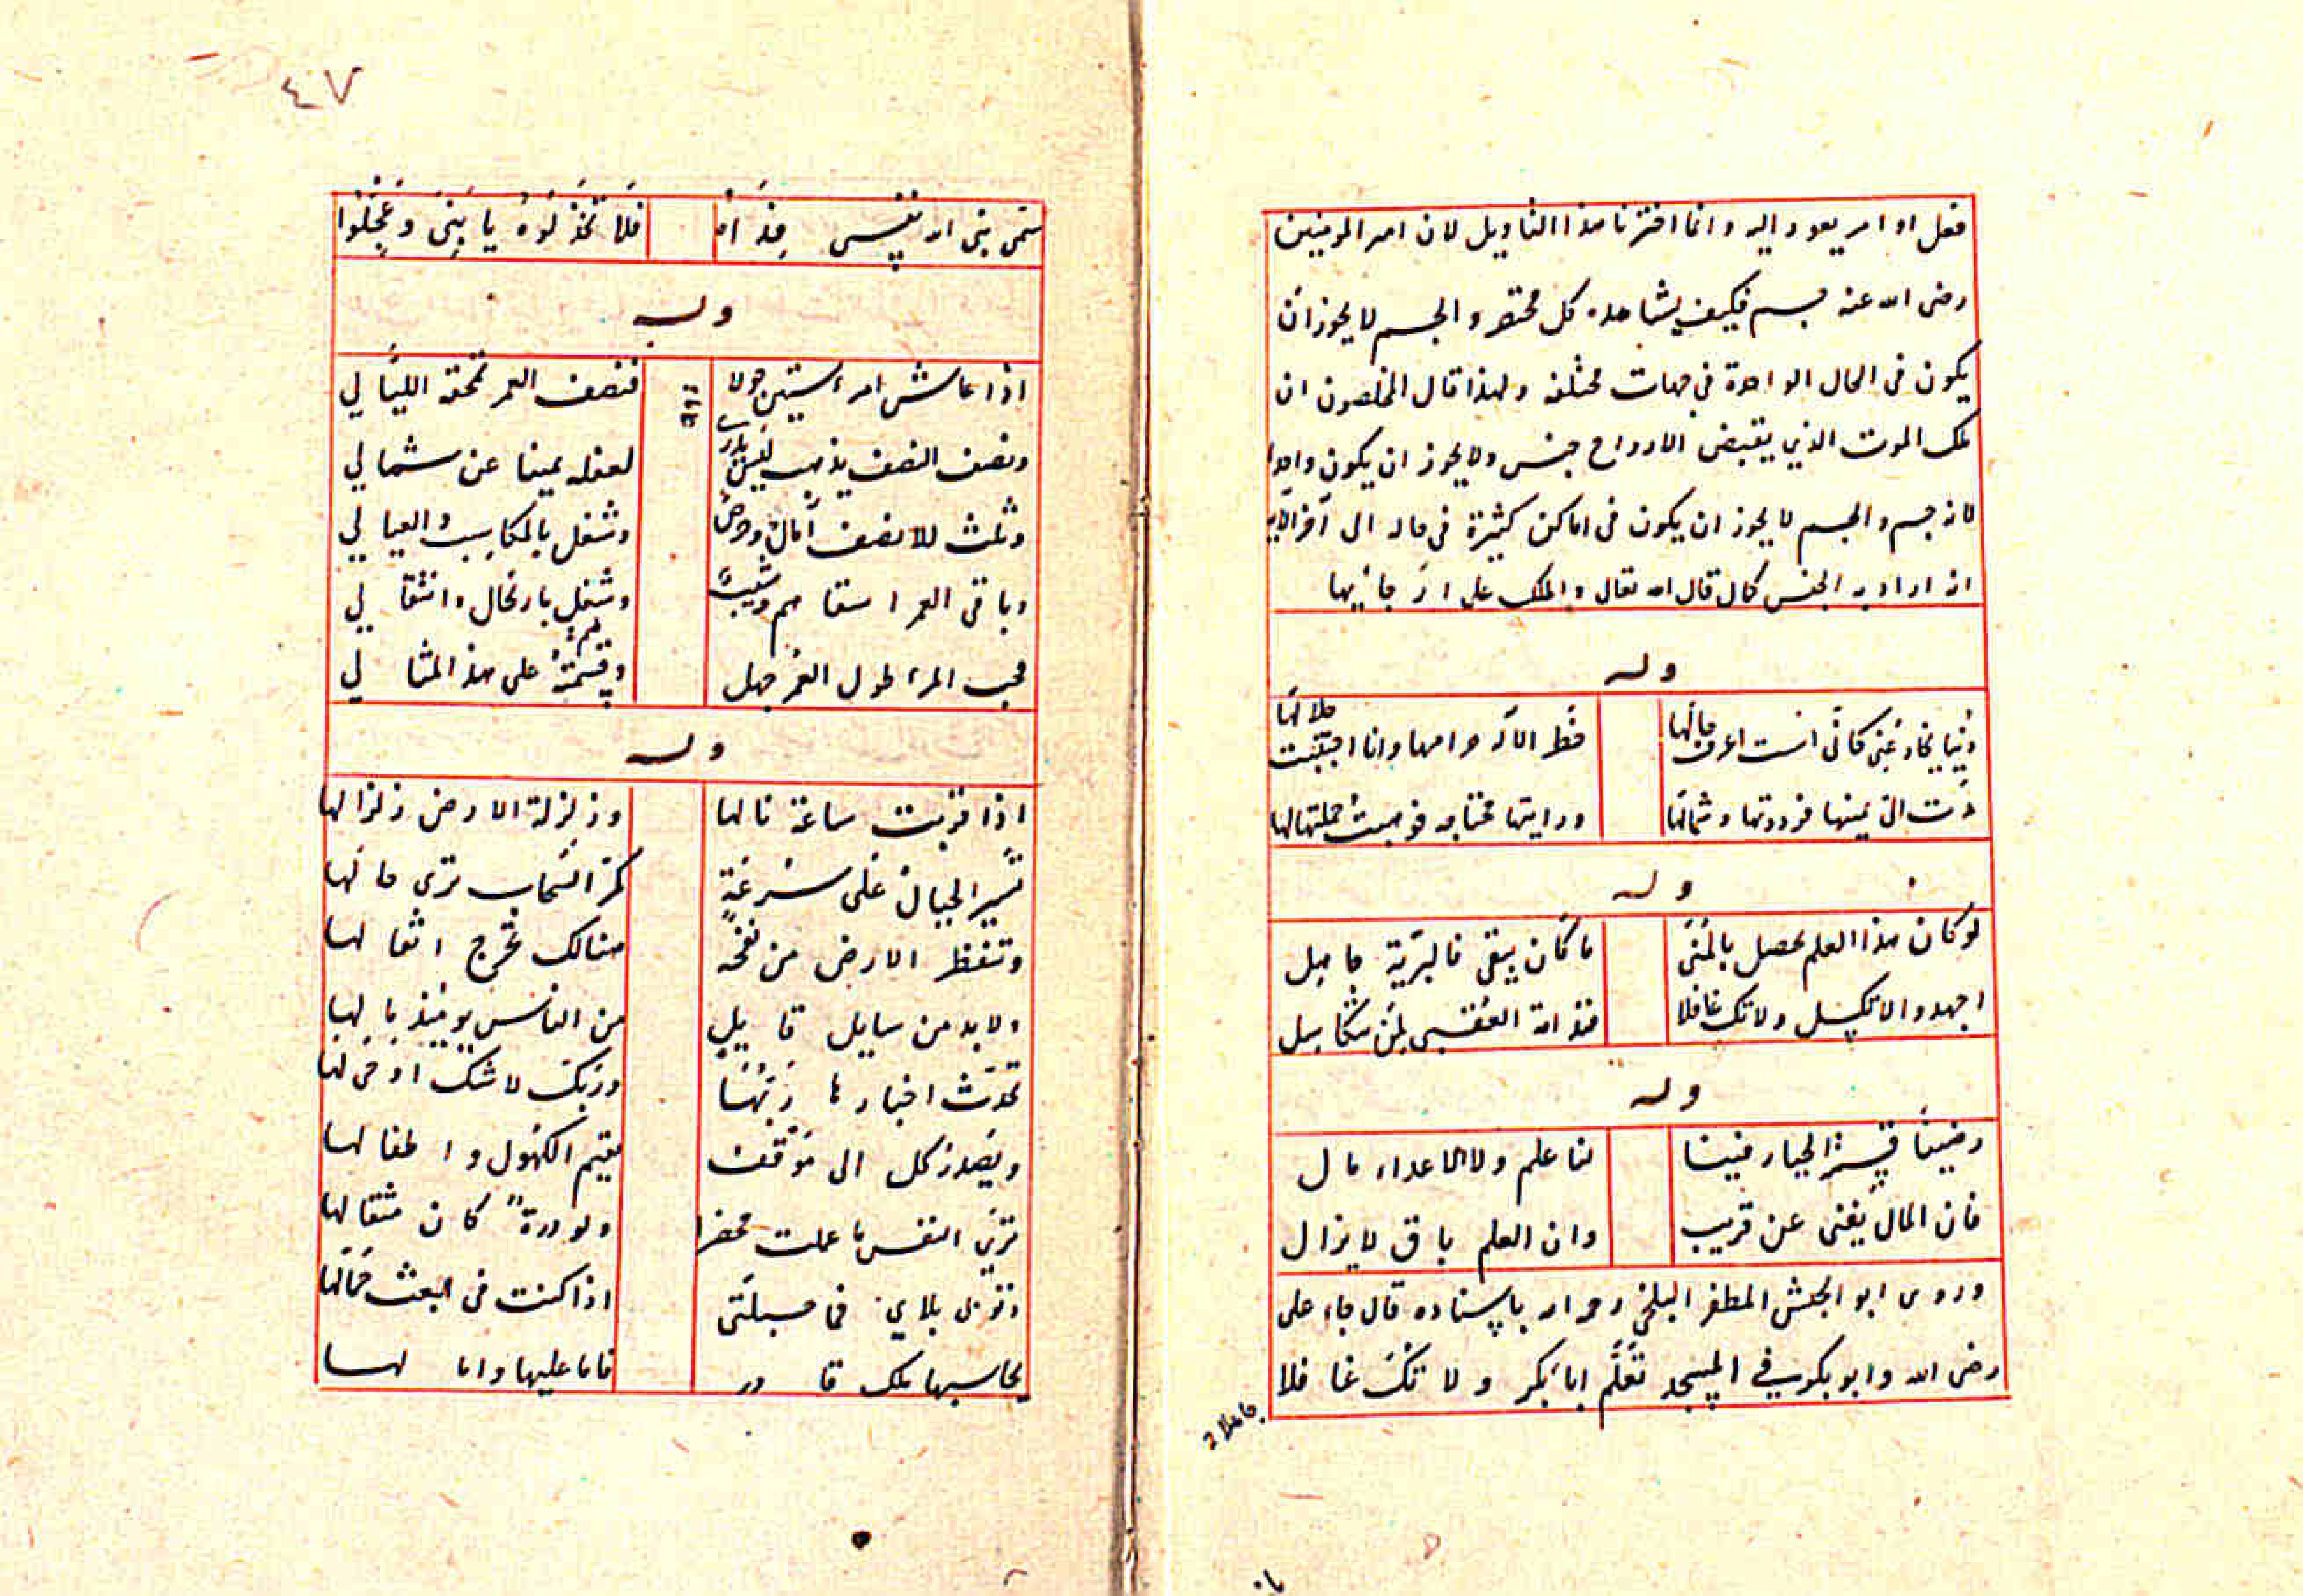 فعل او امر يعود اليه وانما اخترنا هذا التاويل لان امير المومنين
رضى الله عنه جسم فكيف يشاهده كل محتضر والجسم لا يجوز ان
يكون فى الحال الواحدة فى جهات مختلفه ولهذا قال المخلصون ان
ملك الموت الذي يقبض الارواح جنس ولا يجوز ان يكون واحدا
لانه جسم والجسم لا يجوز ان يكون فى اماكن كثيرة فى حاله الى آخر
انه اراد به الجنس كما قال الله تعالى والملك على ارجائها
وله
دنيا تخادعنى كانى لست اعرف حالها حظر الاله حرامها وانا اجتنبت حلالها
مدت الى يمينها فرددتها وشمالها ورايتها محتاجه فوهبت جملتها لها
وله
لو كان هذا العلم يحصل بالمنى ما كان يبقى فالبرية جاهل
اجهد ولا تكسل ولا تك غافلا فندامة العقبى لمن يتكاسل
وله
رضينا قسمة الجبار فينا لنا علم وللاعداء مال
فان المال يفنى عن قريب وان العلم باق لا يزال
وروى ابو الجيش المظفر البلخى رحمه الله باسناده قال جاء على
رضى الله وابو بكر فى المسجد تعلم ابا بكر ولا تك غافلا
٤٧
فلا تخذلوه يا بنى وعجلوا
وله
اذا عاش امرء ستين حولا فنصف العمر تمحقه الليالي
ونصف النصف يذهب ليس يدرى لغفلة يمينا عن شمالي
وثلث النصف آمال وحرص وشغل بالمكاسب والعيالي
وباقى العمر اسقام وشيب وشغل بارتحال وانتقالي
فحب المرء طول العمر جهل وقسمته على هذا المثالي
وله
اذا قربت ساعة نالها وزلزلة الارض زلزالها
تسير الجبال على سرعة كمر السحاب ترى حالها
وتنفطر الارض من نفخة هنالك تخرج اثقالها
ولا بد من سايل قايل من الناس يومئذ مالها
تحدث اخبارها ربها وربك لا شك اوحى لها
ويصدر كل الى موقف يقيم الكهول واطفالها
ترى النفس ما عملت محضرا ولو ذرة كان مثقالها
ذنوبى بلاي فما حيلتى اذا كنت فى البعث حمالها
يحاسبها ملك قادر فاما عليها واما لها